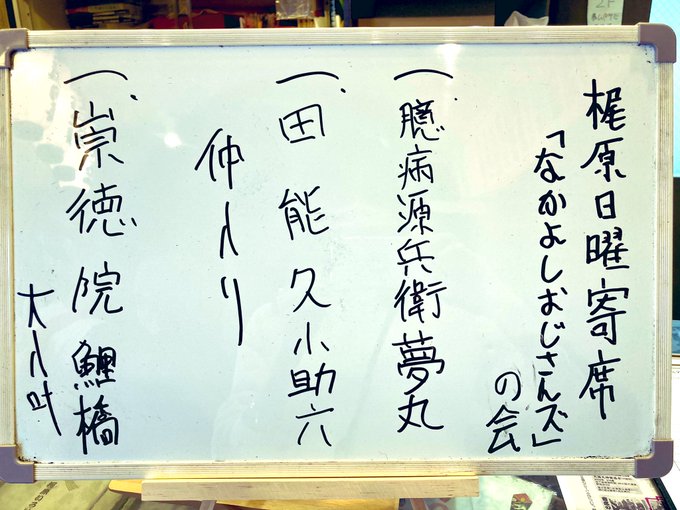 梶原日曜寄席
「なかよしおじさんズ」
の会
一、臆病源兵衛夢丸
一、田能久小助六
仲入り
一、崇徳院鯉橋
大入叶
2F